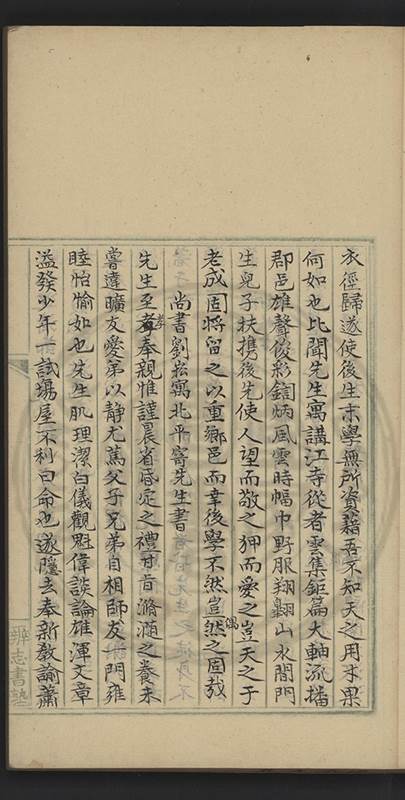 衣徑歸遂使後生末學無所資籍吾不知天之用才果
何如也比聞先生寓講江寺從者雲集鉅篇大軸流播
郡邑雄聲俊彩鎧炳風雲時幅巾野服翔翺山水間門
生兒子扶携後先使人望而敬之狎而愛之豈天之于
老成固將留之以重鄉邑而幸後學不然豈偶然之固哉
尚書劉崧寓北平寄先生書
先生至孝奉親惟謹晨省昏定之禮甘旨滫瀡之養未
嘗違曠友愛弟以靜尤篤父子兄弟自相師友一門雍
睦怡愉如也先生肌理潔白儀觀魁偉談論雄渾文章
溢發少年一試塲屋不利曰命也遂隱去奉新教諭蕭
辨志書塾